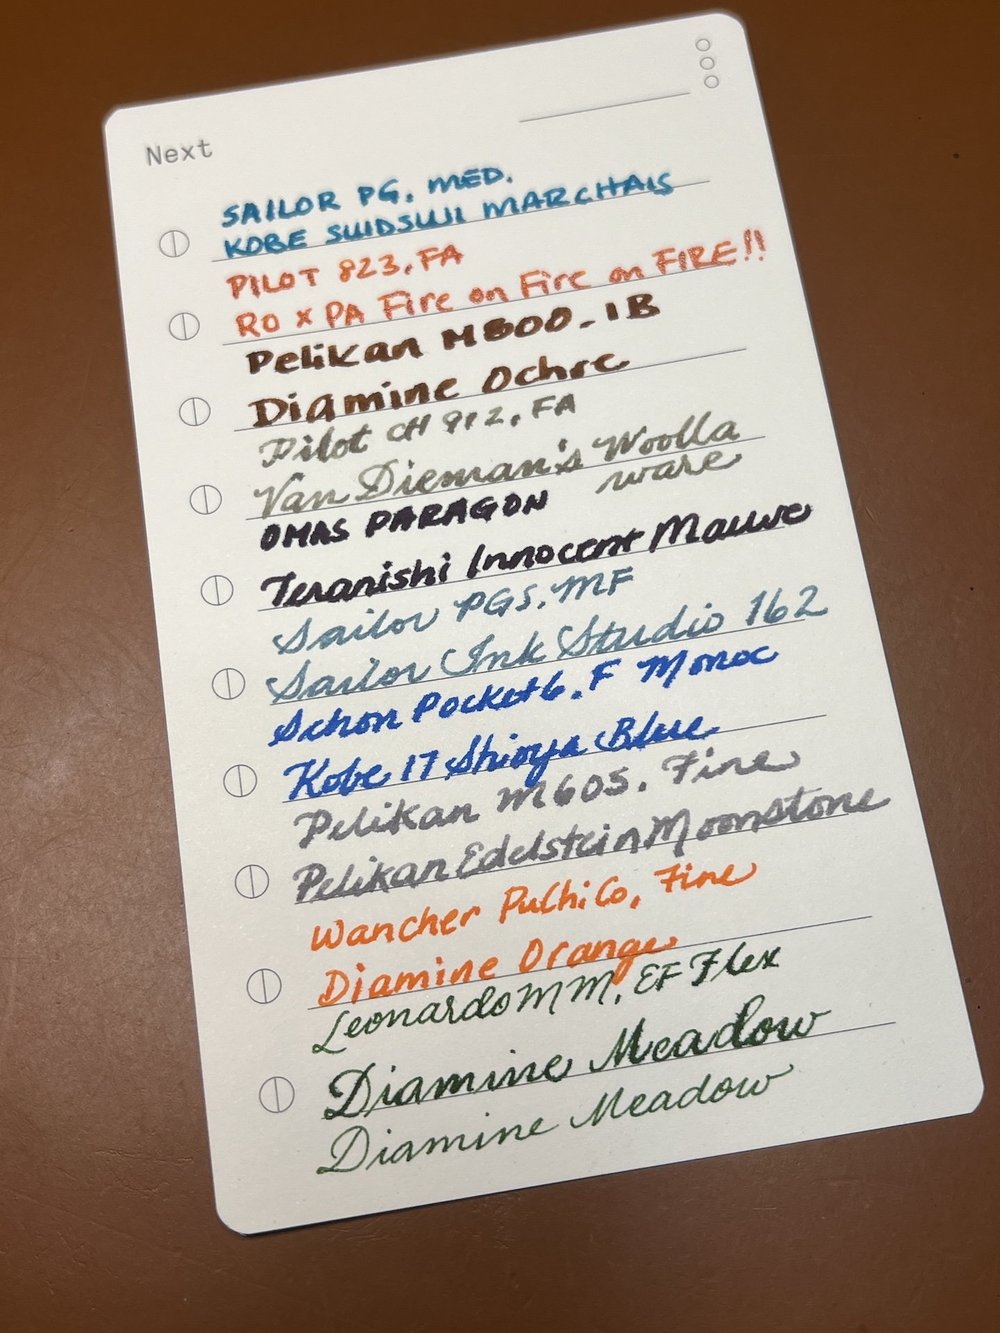 Next
SAILOR PG. MED.
KOBE SUIDSUJI MARCHAIS
PILOT 823, FA
RO x PA Fire on Fire on FIRE!!
Pelikan M800 - IB
Diamine Ochre
Pilot CH 912, FA
Van Dieman's Woolla
ware
OMAS PARAGON
Teranishi Innocent Mauve
Sailor PGS, MF
Sailor Ink Studio 162
Schon Pocket 6, F Monoc
Kobe 17 Shioya Blue
Pelikan M605, Fine
Pelikan Edelstein Moonstone
Wancher PuChiCo, Fine
Diamine Orange
Leonardo MM, EF Flex
Diamine Meadow
Diamine Meadow